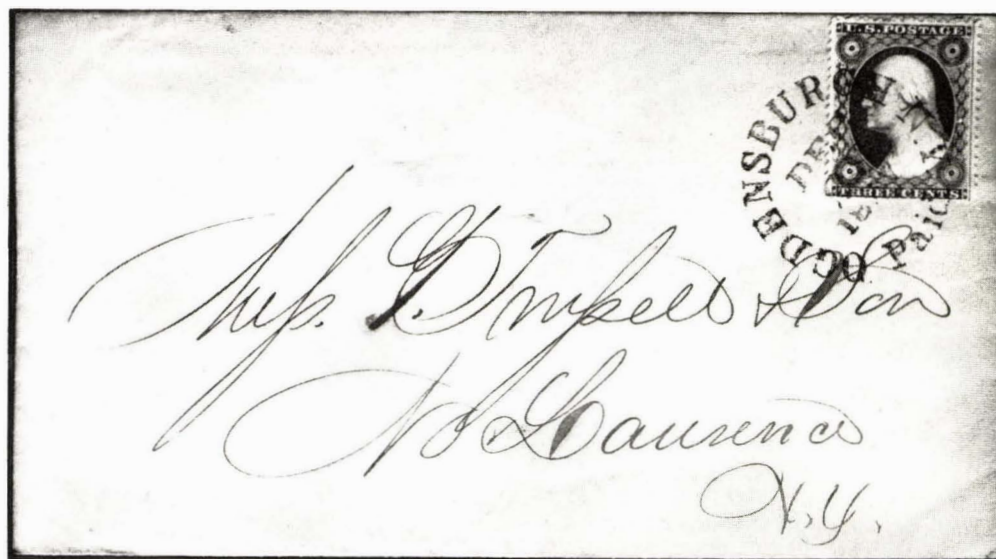 U.S. POSTAGE
THREE CENTS
OGDENSBURGH N.Y.
Paid
Mess. & Son
No Lawrence
N.Y.